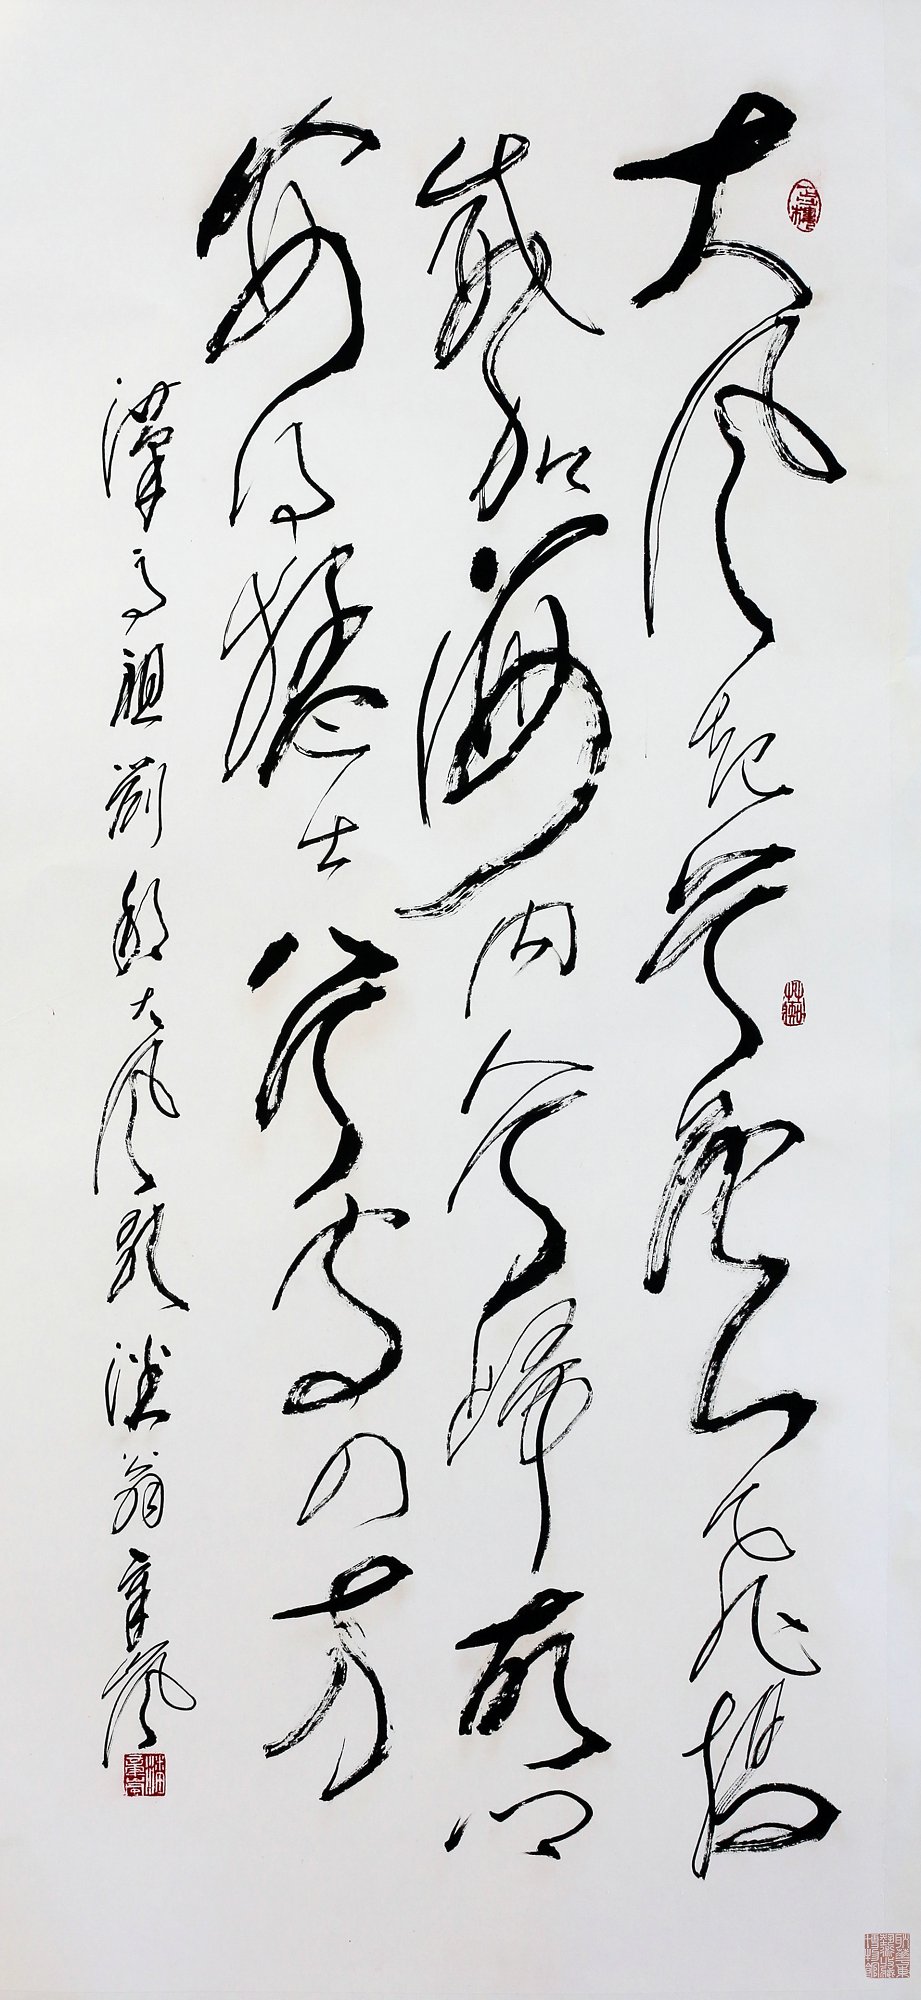 大风起兮云飞扬
威加海内兮归故乡
安得猛士兮守四方
汉高祖刘邦大风歌 翁章